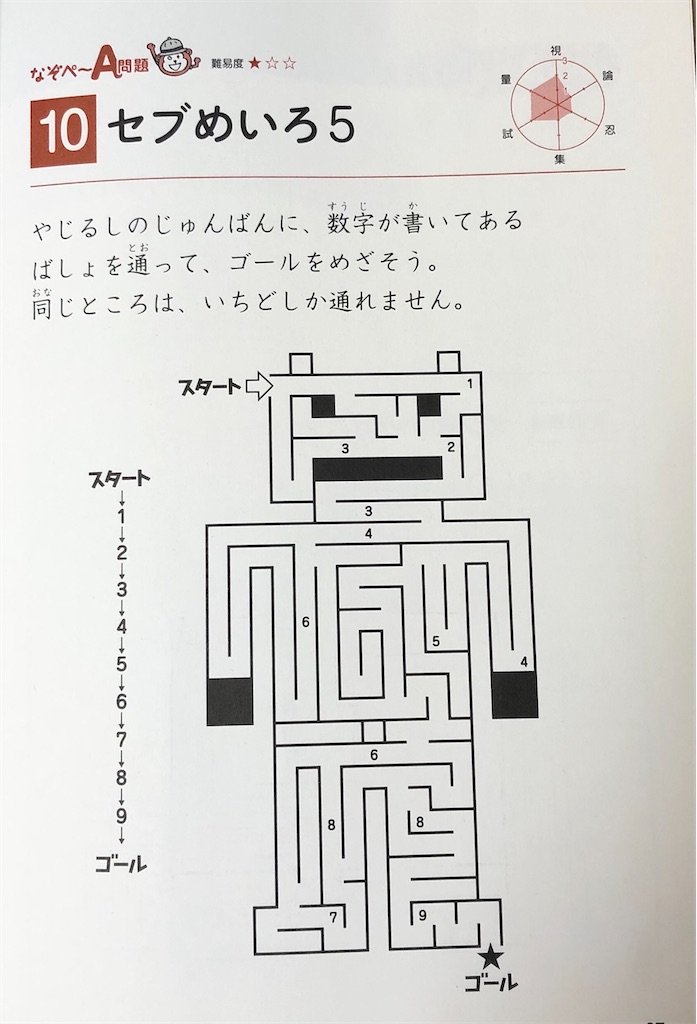 なぞぺ〜A問題 難易度★☆☆
視
論
忍
集
試
量
3
2
10 セブめいろ5
やじるしのじゅんばんに、数字が書いてある
すうじ か
ばしょを通って、ゴールをめざそう。
とお
同じところは、いちどしか通れません。
おな
スタート
1
3
2
3
4
6
5
4
6
8
8
7
9
ゴール
スタート
1
2
3
4
5
6
7
8
9
ゴール